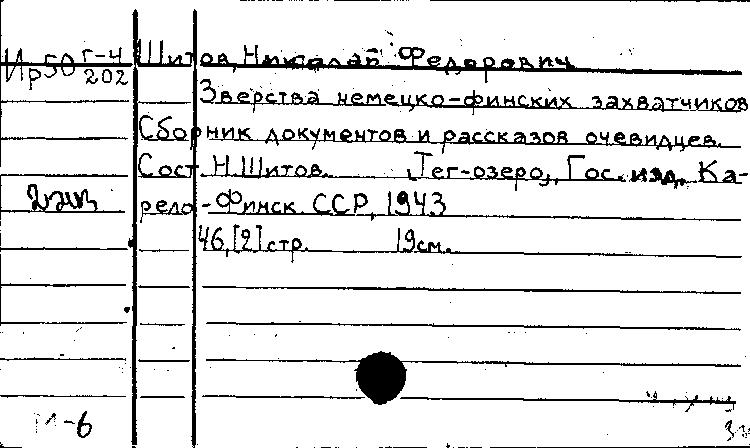 Ир50 Г-4/202
Шитов, Николай Федорович
Зверства немецко-финских захватчиков
Сборник документов и рассказов очевидцев.
Сост. Н. Шитов. "Тег-озеро", Гос. изд. Ка-
2экз
рело-Финск. ССР, 1943
46,[2] стр. 19см.
-6